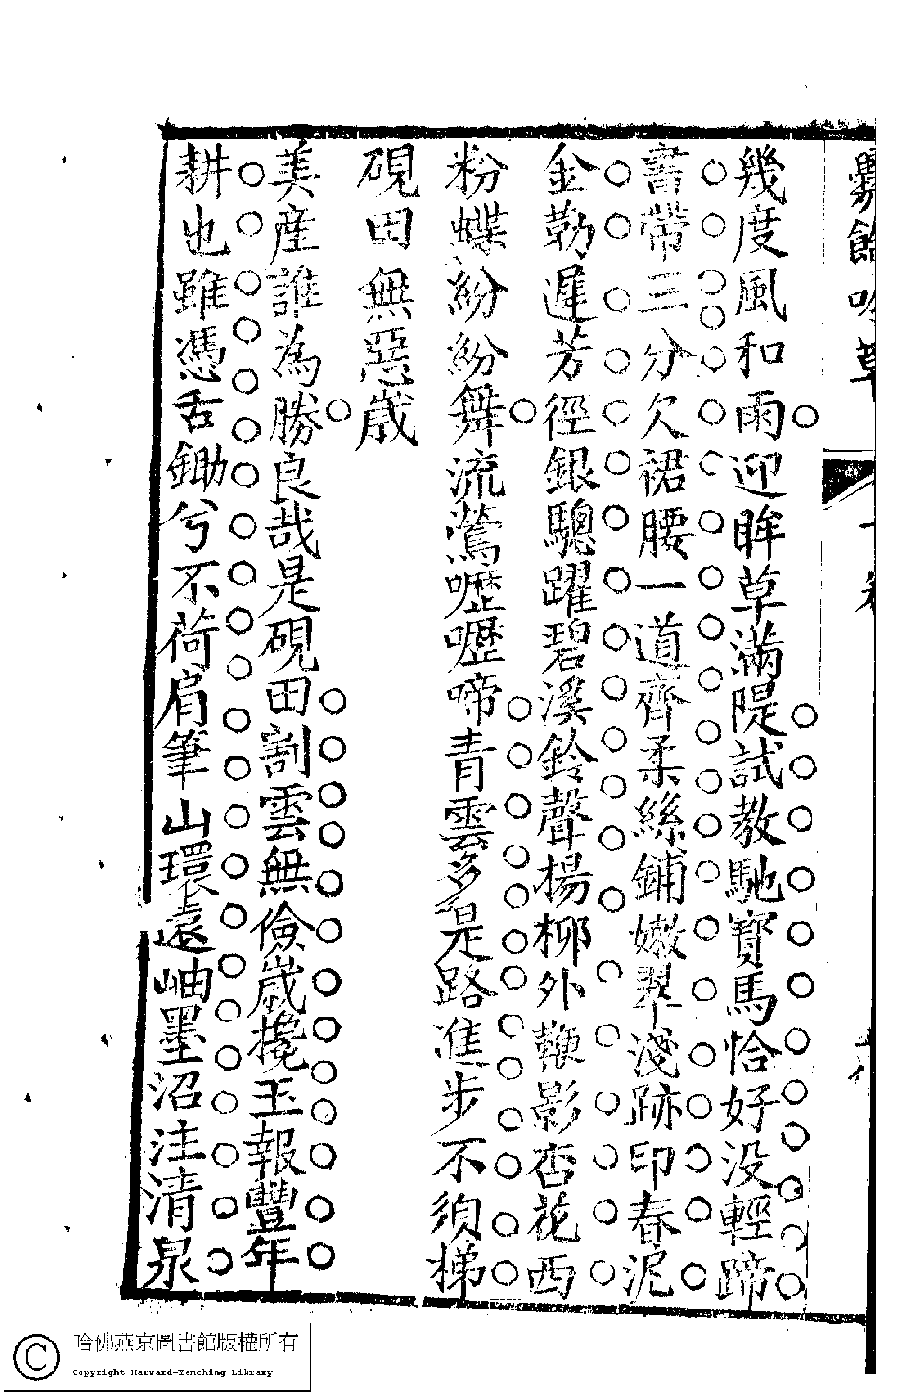 幾度風和雨迎眸草滿隄試教馳寶馬恰好没輕蹄
書帶三分欠裙腰一道齊柔絲鋪嫩翠淺跡印春泥
金勒遲芳徑銀驄躍碧溪鈴聲楊柳外鞭影杏花西
粉蝶紛紛舞流鶯嚦嚦啼青雲多是路進步不須梯
硯田無惡歲
美產誰為勝良哉是硯田割雲無儉歲攙玉報豐年
耕也雖憑舌鋤兮不荷肩筆山環遠岫墨沼注清泉
哈佛燕京圖書館版權所有
Copyright Harvard-Yenching Library